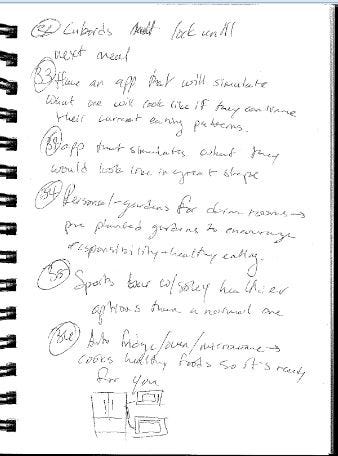 32 Cubords lock until
next meal
33 Have an app that will simulate
what one will look like if they continue
their current eating patterns.
app that simulates what they
would look like in great shape
34 Personal gardens for dorm rooms →
pre planted gardens to encourage
responsibility + healthy eating.
35 Sports bar w/ soley healthier
options than a normal one
36 Auto fridge/oven/microwave →
cooks healthy foods so it's ready
for you